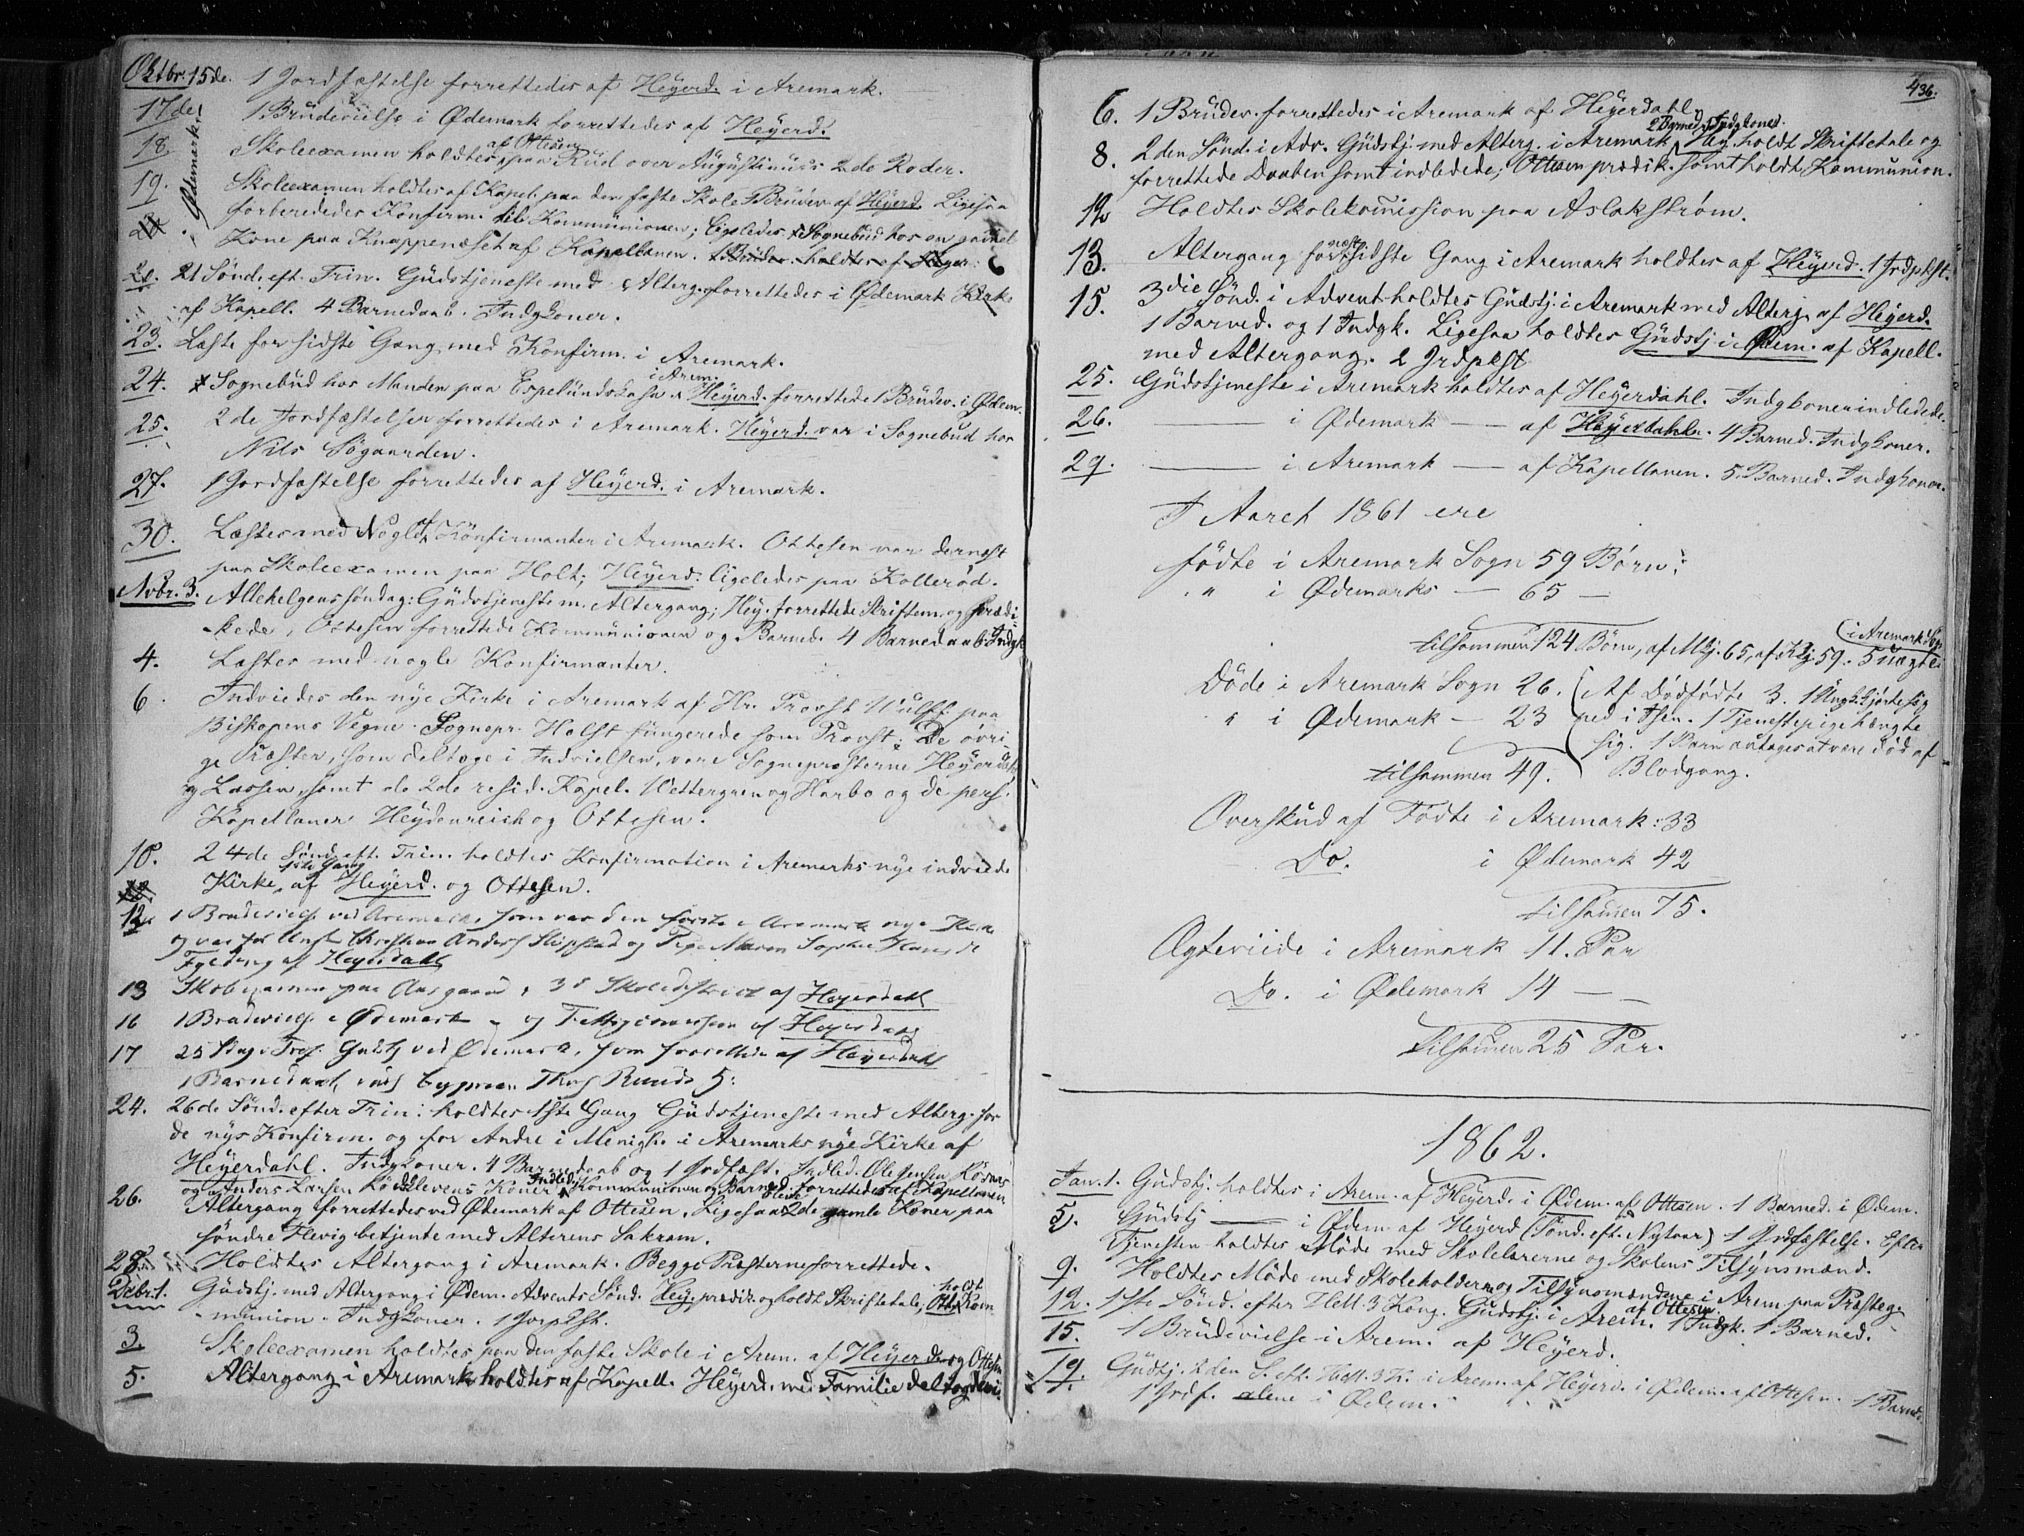 Oktbr. 15de. 1 Jordfæstelse forrettedes af Heyerd. i Aremark.
17de 1 Brudevielse i Ødemark forrettedes af Heyerd.
Ødemark.
18. Skoleexamen holdtes af Ottesen paa Rud over Augustinus's 2de Roder.
19. Skoleexamen holdtes af Kapel. paa den faste Skole 1 Brudev. af Heyerd. Ligesaa
forberededes Konfirm. til Kommunionen; ligeledes Sognebud hos en gammel
Kone paa Knappenæset af Kapellanen.
20. 21 Sønd. eft. Trin. Gudstjeneste med Alterg. forrettedes i Ødemark Kirke
af Kapell. 4 Barnedaab. Indgkoner.
23. Læste for sidste Gang med Konfirm. i Aremark.
24. Sognebud hos Manden paa Espelund i Arem. Heyerd. forrettede 1 Brudev. i Ødem.
25. 2de Jordfæstelser forrettedes i Aremark. Heyerd. var i Sognebud hos
Nils Søgaarden.
27. 1 Jordfæstelse forrettedes af Heyerd. i Aremark.
30. Læstes med Nogle af Konfirmanter i Aremark. Ottesen var dernæst
paa Skoleexamen paa Holt; Heyerd. ligeledes paa Kollerød.
Novbr. 3. Allehelgenssøndag: Gudstjeneste m. Altergang; Hey. forrettede Skriftem. og prædi-
kede, Ottesen forrettede Kommunionen og Barned. 4 Barnedaab. Indgk.
4. Læstes med nogle Konfirmanter.
6. Indviedes den nye Kirke i Aremark af Hr. Provst Wulff paa
Biskopens Vegne. Sognepr. Holst fungerede som Provst; De øvri-
ge Præster, som deltoge i Indvielsen, vare Sognepræsterne Heyerdahl
og Lassen, samt de 2de resid. Kapel. Wettergren og Harbo og de pers.
Kapellaner Heydenreich og Ottesen.
10. 24de Sønd. eft. Trin. holdtes Konfirmation i Aremarks nye indviede
Kirke 1ste Gang af Heyerd. og Ottesen.
12. 1 Brudevielse ved Aremark, som var den første i Aremark nye Kirke
og var for Christian Anders og Pige Maren Sophie
af Heyerdahl
13 Skoleexamen paa Aasgaard, 3d Skoledistrict af Heyerdahl
16 1 Brudevielse i Ødemark og af Heyerdahl
17 25 Sdag e Tref. Gudtj. ved Ødemark, som forrettedes af Heyerdahl
1 Barnedaab,
24. 26de Sønd. efter Trin: holdtes 1ste Gang Gudstjeneste med Alterg. for
de nys Konfirm. og for Andre i Menigh. i Aremarks nye Kirke af
Heyerdahl. Indgkoner. 4 Barnedaab og 1 Jrdfæst. Indled. Ole Jensen
og Anders Larsen Koner Kommunionen og Barned. forrettedes af Kapellanen
26. Altergang forrettedes ved Ødemark af Ottesen. Ligesaa 2de gamle Koner paa
søndre Flevig betjente med Alterens Sakram.
28. Holdtes Altergang i Aremark. Begge Præsterne forrettede.
Decbr. 1. Gudstj. med Altergang i Ødem. Advents Sønd. Hey. prædik. og holdt Skriftetale, Ott. holdt Kom-
munion. Indgkoner. 1 Jorpkst.
3. Skoleexamen holdtes paa den faste Skole i Arem. af Heyerd. og Ottesen
5. Altergang i Aremark holdtes af Kapell. Heyerd. med Familie deltog deri
436.
6. 1 Brudev. forrettedes i Aremark af Heyerdahl
8. 2den Sønd. i Adv. Gudstj. med Alterg. i Aremark 2 Barned. Indgkoner. Hey. holdt Skriftetale og
forrettede Daaben samt indledede; Ottesen prædik. samt holdt Kommunion.
12 Holdtes Skolekomission paa Aslakstrøm.
13. Altergang for næstsidste Gang i Aremark holdtes af Heyerd. 1 Jrdpkst.
15. 3die Sønd. i Advent holdtes Gudstj. i Aremark med Alterg. af Heyerd.
1 Barned. og 1 Indgk. Ligesaa holdtes Gudstj i Ødem. af Kapell.
med Altergang. 2 Jrdpkst
25. Gudstjeneste i Aremark holdtes af Heyerdahl. Indgkoner indledede.
26. —— i Ødemark — af Heyerdahl. 4 Barned. Indgkoner.
29. —— i Aremark — af Kapellanen. 5. Barned. Indgkoner.
I Aaret 1861 ere
fødte i Aremark Sogn 59 Børn;
„ i Ødemarks — 65 —
tilsammen 124 Børn, af Mkj. 65, af Kkj. 59. 5 uægte (i Aremark Sogn
Døde i Aremark Sogn 26. Af Dødfødte 3. 1 Ungk. skjørte sig
„ i Ødemark — 23 ned i Isen. 1 Tjenestepige hængte
sig. 1 Barn antages at være død af
tilsammen 49. Blodgang.
Overskud af Fødte i Aremark: 33
Do. i Ødemark 42
tilsamen 75.
Ægteviede i Aremark 11. Par
Do. i Ødemark 14 —
tilsamen 25 Par.
1862.
Jan. 1. Gudstj. holdtes i Arem. af Heyerd. i Ødem. af Ottesen. 1 Barned. i Ødem.
5. Gudstj —— i Ødem af Heyerd (Sønd. eft. Nytaar) 1 Jrdfæstelse. Efter
Tjenesten holdtes Møde med Skolelærerne og Skolens Tilsynsmænd.
9. Holdtes Møde med Skoleholderne og Tilsynsmændene i Arem paa Præsteg.
12. 1ste Sønd. efter Hell. 3 Kong. Gudstj. i Arem. af Ottesen. 1 Indgk. 1 Barned.
15. 1 Brudevielse i Arem. af Heyerd.
19. Gudtj. 2den S. eft. Hell. 3 K. i Arem. af Heyerd. i Ødem. af Ottesen. 1 Barned.
1 Jrdf. alene i Ødem.